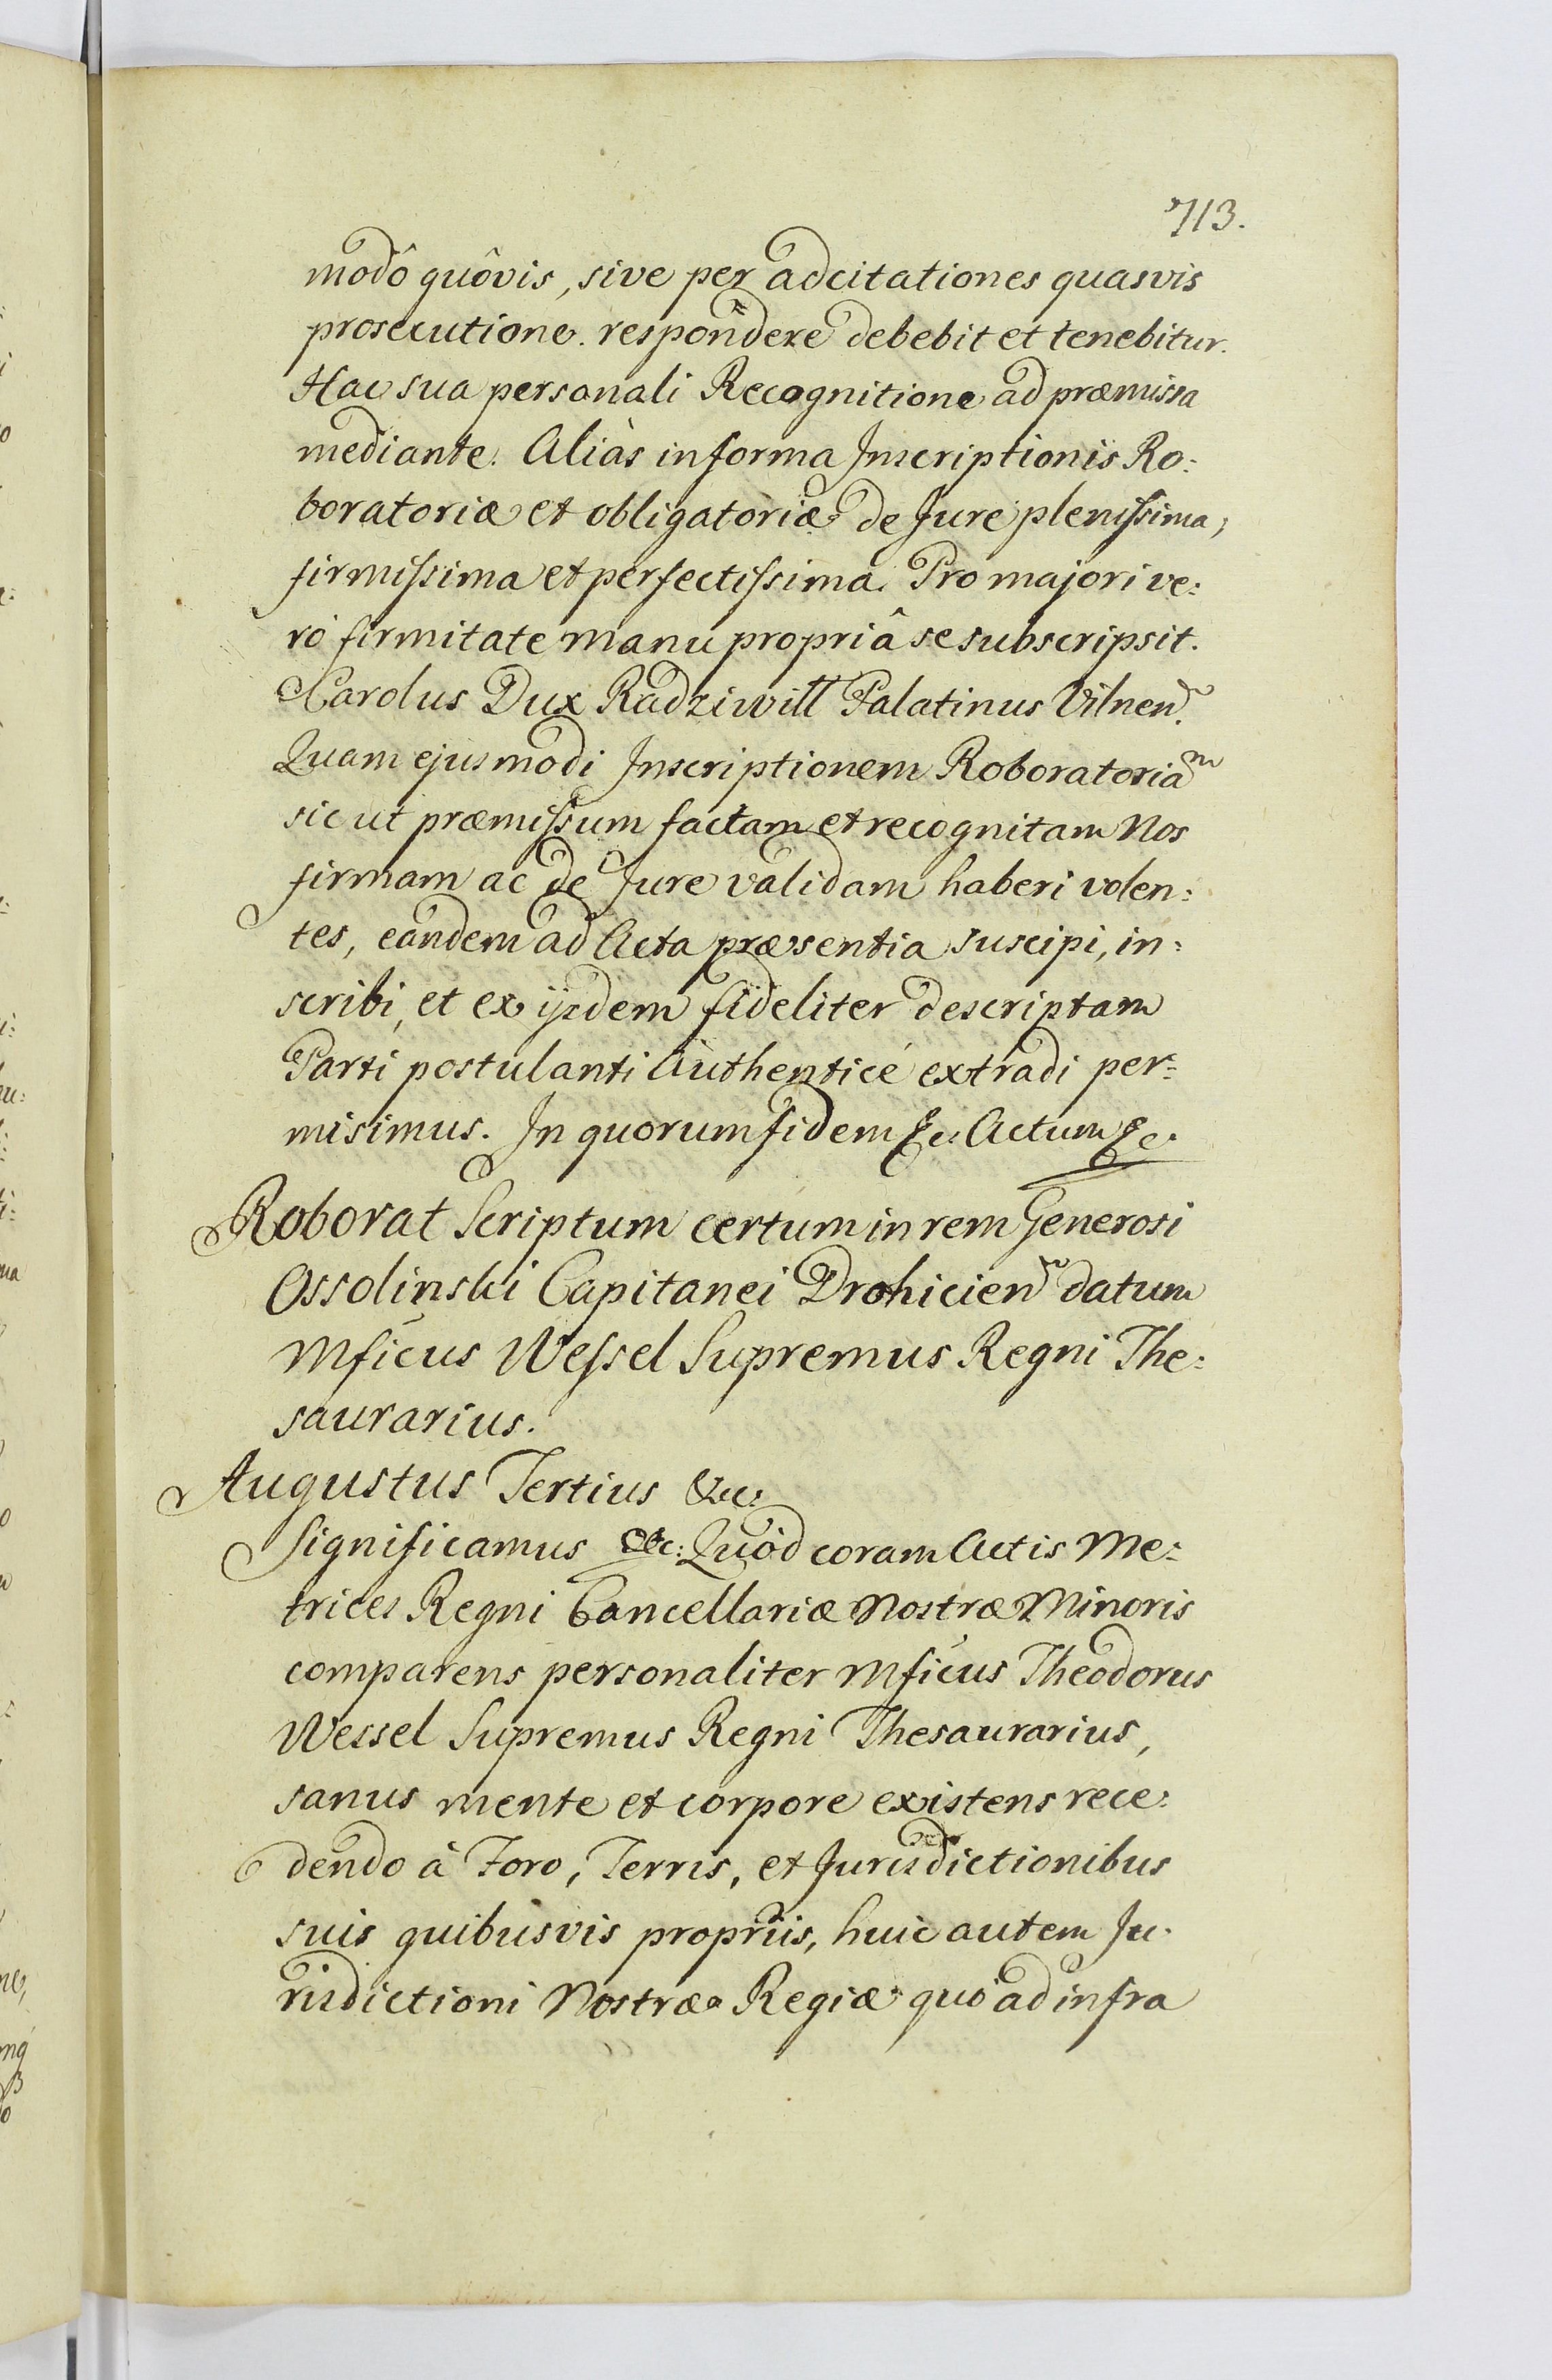 713.
modô quôvis, sive per adcitationes quasvis
prosecutione. respondere debebit et tenebitur.
Hac sua personali Recognitione ad præmissa
mediante. Aliàs in forma Inscriptionis Ro:
boratoriæ et obligatoriæ de Jure plenissima,
firmissima et perfectissima. Pro majori ve:
rò firmitate manu propriâ se subscripsit.
Carolus Dux Radziwill Palatinus Vilnen.
Quam ejusmodi Inscriptionem Roboratoriam
sic ut præmissum factam et recognitam Nos
firmam ac de Jure validam haberi volen:
tes, eandem ad Acta præsentia suscipi, in:
scribi, et ex ijsdem fideliter descriptam
Parti postulanti Authenticé extradi per:
misimus. In quorum fidem &c: Actum &c.
Roborat Scriptum certum in rem Generosi
Ossolinski Capitanei Drohicien datum
Mficus Wessel Supremus Regni The:
saurarius.
Augustus Tertius &c:
Significamus &c: Quòd coram Actis Me:
trices Regni Cancellariæ Nostræ Minoris
comparens personaliter Mficus Theodorus
Wessel Supremus Regni Thesaurarius,
sanus mente et corpore existens rece:
dendo à Foro, Terris, et Jurisdictionibus
suis quibusvis proprijs, huic autem Ju:
risdictioni Nostræ Regiæ quò ad infra